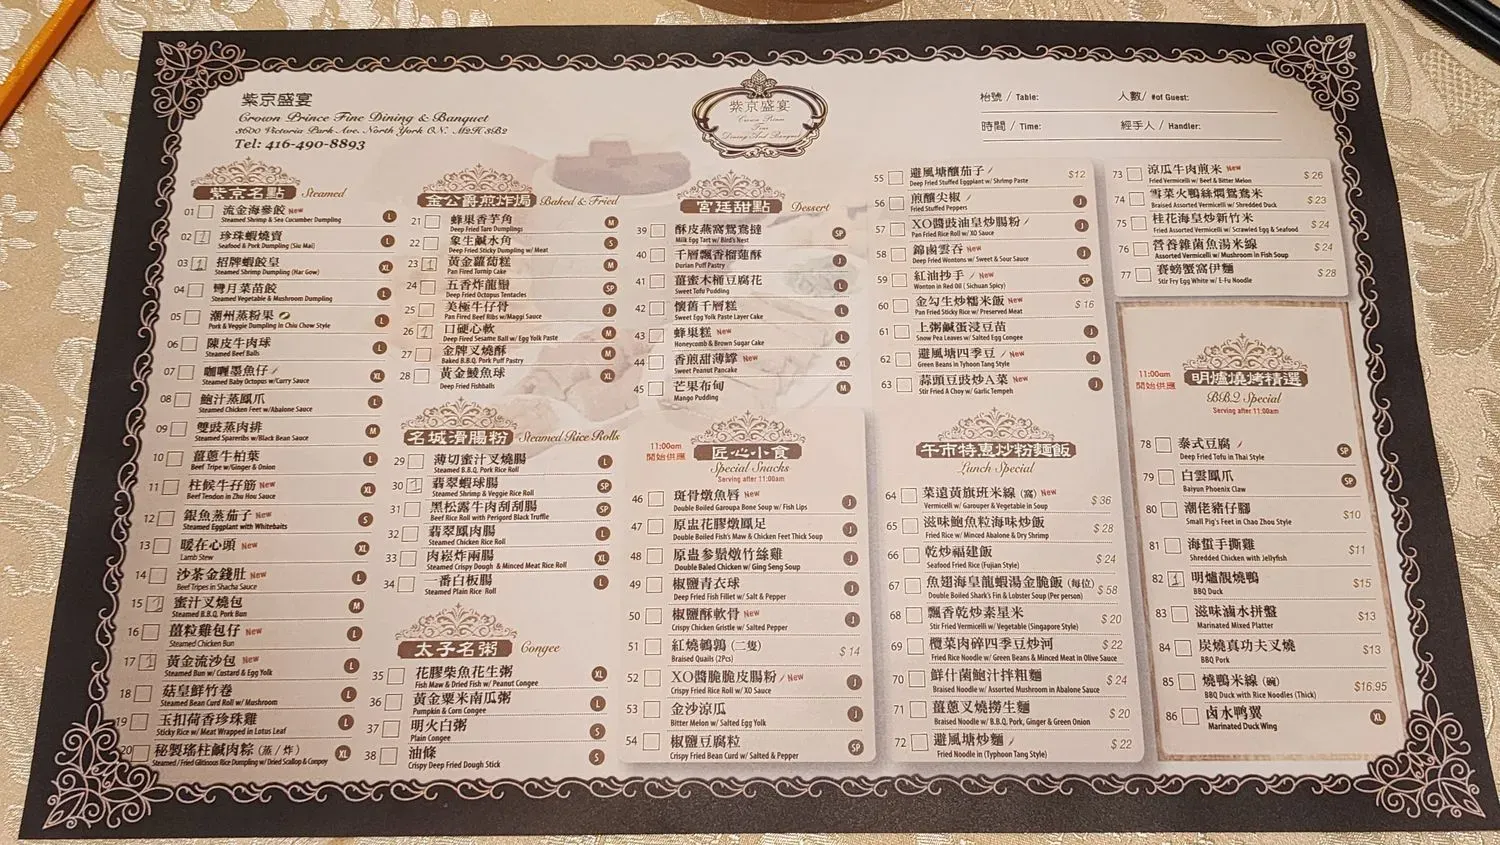 紫京盛宴
Crown Prince Fine Dining & Banquet
3600 Victoria Park Ave. North York ON. M2H 3B2
Tel: 416-490-8893
紫京盛宴
Crown Prince
Fine
Dining And Banquet
枱號 / Table:
人數/ #of Guest:
時間 / Time:
經手人 / Handler:
紫京名點 Steamed
01 流金海參餃 New L
Steamed Shrimp & Sea Cucumber Dumpling
02 1 珍珠蝦燒賣 L
Seafood & Pork Dumpling (Siu Mai)
03 1 招牌蝦餃皇 XL
Steamed Shrimp Dumpling (Har Gow)
04 彎月菜苗餃 L
Steamed Vegetable & Mushroom Dumpling
05 潮州蒸粉果 L
Pork & Veggie Dumpling In Chiu Chow Style
06 陳皮牛肉球 L
Steamed Beef Balls
07 咖喱墨魚仔 XL
Steamed Baby Octopus w/Curry Sauce
08 鮑汁蒸鳳爪 L
Steamed Chicken Feet w/Abalone Sauce
09 雙豉蒸肉排 M
Steamed Spareribs w/Black Bean Sauce
10 薑蔥牛柏葉 L
Beef Tripe w/Ginger & Onion
11 柱候牛孖筋 New XL
Beef Tendon in Zhu Hou Sauce
12 銀魚蒸茄子 New S
Steamed Eggplant with Whitebaits
13 暖在心頭 New XL
Lamb Stew
14 沙茶金錢肚 New L
Beef Tripes in Shacha Sauce
15 1 蜜汁叉燒包 M
Steamed B.B.Q. Pork Bun
16 薑粒雞包仔 New L
Steamed Chicken Bun
17 1 黃金流沙包 New L
Steamed Bun w/ Custard & Egg Yolk
18 菇皇鮮竹卷 L
Steamed Bean Curd Roll w/ Mushroom
19 玉扣荷香珍珠雞 L
Sticky Rice w/ Meat Wrapped in Lotus Leaf
20 秘製瑤柱鹹肉粽 (蒸 / 炸) XL
Steamed / Fried Glitinous Rice Dumpling w/ Dried Scallop & Conpoy
金公爵煎炸焗 Baked & Fried
21 蜂巢香芋角 M
Deep Fried Taro Dumplings
22 象生鹹水角 S
Deep Fried Sticky Dumpling w/ Meat
23 1 黃金蘿蔔糕 M
Pan Fired Turnip Cake
24 五香炸龍鬚 SP
Deep Fried Octopus Tentacles
25 美極牛仔骨 J
Pan Fried Beef Ribs w/Maggi Sauce
26 1 口硬心軟 M
Deep Fired Sesame Ball w/ Egg Yolk Paste
27 金牌叉燒酥 M
Baked B.B.Q. Pork Puff Pastry
28 黃金鯪魚球 XL
Deep Fried Fishballs
名城滑腸粉 Steamed Rice Rolls
29 薄切蜜汁叉燒腸 L
Steamed B.B.Q. Pork Rice Roll
30 1 翡翠蝦球腸 SP
Steamed Shrimp & Veggie Rice Roll
31 黑松露牛肉刮刮腸 SP
Beef Rice Roll with Perigord Black Truffle
32 翡翠鳳肉腸 L
Steamed Chicken Rice Roll
33 肉崧炸兩腸 XL
Steamed Crispy Dough & Minced Meat Rice Roll
34 一番白板腸 L
Steamed Plain Rice Roll
太子名粥 Congee
35 花膠柴魚花生粥 XL
Fish Maw & Dried Fish w/ Peanut Congee
36 黃金粟米南瓜粥 L
Pumpkin & Corn Congee
37 明火白粥 S
Plain Congee
38 油條 S
Crispy Deep Fried Dough Stick
宮廷甜點 Dessert
39 酥皮燕窩鴛鴦撻 SP
Milk Egg Tart w/ Bird's Nest
40 千層飄香榴蓮酥 J
Durian Puff Pastry
41 薑蜜木桶豆腐花 L
Sweet Tofu Pudding
42 懷舊千層糕 L
Sweet Egg Yolk Paste Layer Cake
43 蜂巢糕 New L
Honeycomb & Brown Sugar Cake
44 香煎甜薄罉 New XL
Sweet Peanut Pancake
45 芒果布甸 M
Mango Pudding
11:00am
開始供應
匠心小食
Special Snacks
Serving after 11:00am
46 斑骨燉魚唇 New J
Double Boiled Garoupa Bone Soup w/ Fish Lips
47 原盅花膠燉鳳足 J
Double Boiled Fish's Maw & Chicken Feet Thick Soup
48 原盅參鬚燉竹絲雞 J
Double Baled Chicken w/ Ging Seng Soup
49 椒鹽青衣球 J
Deep Fried Fish Fillet w/ Salt & Pepper
50 椒鹽酥軟骨 New J
Crispy Chicken Gristle w/ Salted Pepper
51 紅燒鵪鶉 (二隻) $ 14
Braised Quails (2Pcs)
52 XO醬脆脆皮腸粉 New J
Crispy Fried Rice Roll w/ XO Sauce
53 金沙涼瓜 J
Bitter Melon w/ Salted Egg Yolk
54 椒鹽豆腐粒 SP
Crispy Fried Bean Curd w/ Salted & Pepper
55 避風塘釀茄子 $12
Deep Fried Stuffed Eggplant w/ Shrimp Paste
56 煎釀尖椒 J
Fried Stuffed Peppers
57 XO醬豉油皇炒腸粉 J
Pan Fried Rice Roll w/ XO Sauce
58 錦鹵雲吞 New J
Deep Fried Wontons w/ Sweet & Sour Sauce
59 紅油抄手 New SP
Wonton in Red Oil ( Sichuan Spicy)
60 金勾生炒糯米飯 New $ 16
Pan Fried Sticky Rice w/ Preserved Meat
61 上粥鹹蛋浸豆苗 J
Snow Pea Leaves w/ Salted Egg Congee
62 避風塘四季豆 New J
Green Beans in Tyhoon Tang Style
63 蒜頭豆豉炒A菜 New J
Stir Fried A Choy w/ Garlic Tempeh
午市特惠炒粉麵飯
Lunch Special
64 菜遠黃旗班米線 (窩) New $ 36
Vermicelli w/ Garouper & Vegetable in Soup
65 滋味鮑魚粒海味炒飯 $ 28
Fried Rice w/ Minced Abalone & Dry Shrimp
66 乾炒福建飯 $ 24
Seafood Fried Rice (Fujian Style)
67 魚翅海皇龍蝦湯金脆飯 (每位) $ 58
Double Boiled Shark's Fin & Lobster Soup (Per person)
68 飄香乾炒素星米 $ 20
Stir Fried Vermicelli w/ Vegetable (Singapore Style)
69 欖菜肉碎四季豆炒河 $ 22
Fried Rice Noodle w/ Green Beans & Minced Meat in Olive Sauce
70 鮮什菌鮑汁拌粗麵 $ 24
Braised Noodle w/ Assorted Mushroom in Abalone Sauce
71 薑蔥叉燒撈生麵 $ 20
Braised Noodle w/ B.B.Q, Pork, Ginger & Green Onion
72 避風塘炒麵 $ 22
Fried Noodle in (Typhoon Tang Style)
73 涼瓜牛肉煎米 New $ 26
Fried Vermicelli w/ Beef & Bitter Melon
74 雪菜火鴨絲燜鴛鴦米 $ 23
Braised Assorted Vermicelli w/ Shredded Duck
75 桂花海皇炒新竹米 $ 24
Fried Assorted Vermicelli w/ Scrawled Egg & Seafood
76 營養雜菌魚湯米線 $ 24
Assorted Vermicelli w/ Mushroom in Fish Soup
77 賽螃蟹窩伊麵 $ 28
Stir Fry Egg White w/ E-Fu Noodle
11:00am
開始供應
明爐燒烤精選
B.B.Q Special
Serving after 11:00am
78 泰式豆腐 SP
Deep Fried Tofu in Thai Style
79 白雲鳳爪 SP
Baiyun Phoenix Claw
80 潮佬豬仔腳 $10
Small Pig's Feet in Chao Zhou Style
81 海蜇手撕雞 $11
Shredded Chicken with Jellyfish
82 1 明爐靚燒鴨 $15
BBQ Duck
83 滋味滷水拼盤 $13
Marinated Mixed Platter
84 炭燒真功夫叉燒 $13
BBQ Pork
85 燒鴨米線 (碗) $16.95
BBQ Duck with Rice Noodles (Thick)
86 卤水鸭翼 XL
Marinated Duck Wing